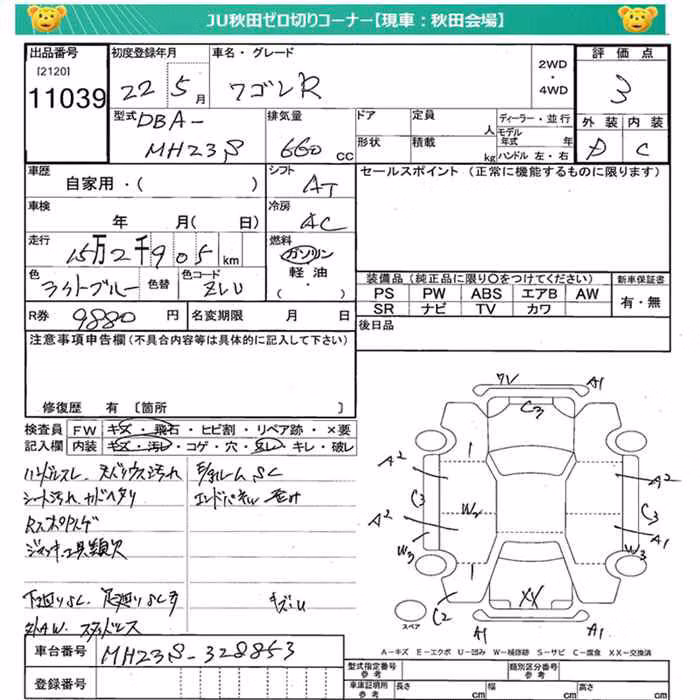 JU秋田ゼロ切りコーナー【現車：秋田会場】
出品番号
[2120]
11039
初度登録年月
22 5月
車名・グレード
ワゴンR
2WD
・
4WD
評価点
3
外装 内装
D C
型式
DBA-
MH23S
排気量
660 CC
ドア
形状
定員
人
積載
kg
ディーラー・並行
モデル年式 年
ハンドル 左・右
車歴
自家用・( )
シフト
AT
車検
年 月( 日)
冷房
AC
走行
15万2千905 km
燃料
ガソリン
軽油・
( )
色
ライトブルー
色替
色コード
ZLU
R券
9880 円
名変期限 月 日
セールスポイント (正常に機能するものに限ります)
装備品 (純正品に限り○をつけてください)
PS PW ABS エアB AW
SR ナビ TV カワ
新車保証書
有・無
後日品
注意事項申告欄(不具合内容等は具体的に記入して下さい)
修復歴 有 [箇所 ]
検査員 FW キズ・飛石・ヒビ割・リペア跡・×要
記入欄 内装 キズ・汚レ・コゲ・穴・スレ・キレ・破レ
ハンドルスレ
シート汚れ
ジャッキ工具類欠
下廻りSC
スタッドレス
ワレ A1
C3
A2 A2
C3 C3
W2
A2 A1
W3 W3
XX
C2
A1 A1
スペア
A－キズ E－エクボ U－凹み W－補修跡 S－サビ C－腐食 XX－交換済
車台番号
MH23S-328853
登録番号
型式指定番号
参考
類別区分番号
車庫証明用
参考
長さ cm
幅 cm
高さ cm